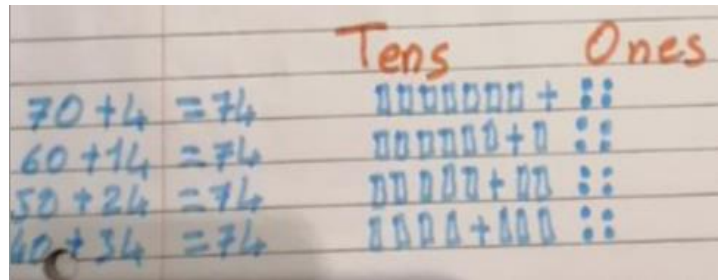 Tens Ones
70 + 4 = 74 +
60 + 14 = 74 +
50 + 24 = 74 +
40 + 34 = 74 +